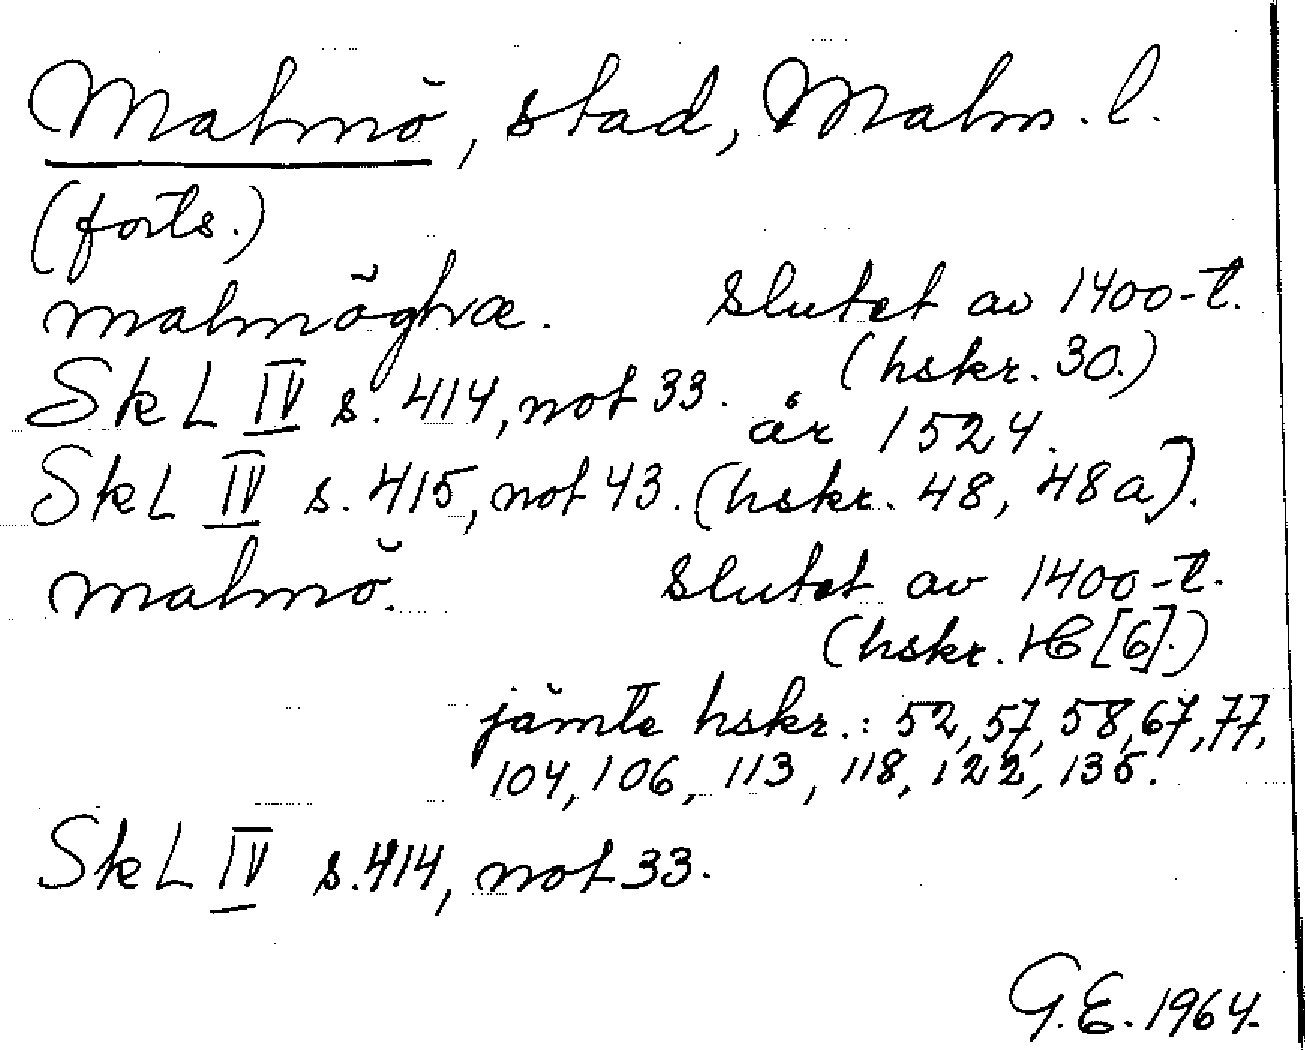 Malmö, stad, Malm. l.
(forts.)
malmöghæ. Slutet av 1400-t.
(hskr. 30.)
Sk L IV s. 414, not 33.
år 1524.
Sk L IV s. 415, not 43. (hskr. 48, 48a).
malmö. Slutet av 1400-t.
(hskr. [6].)
jämte hskr.: 52, 57, 58, 67, 77,
104, 106, 113, 118, 122, 135.
Sk L IV s. 414, not 33.
G.E. 1964.